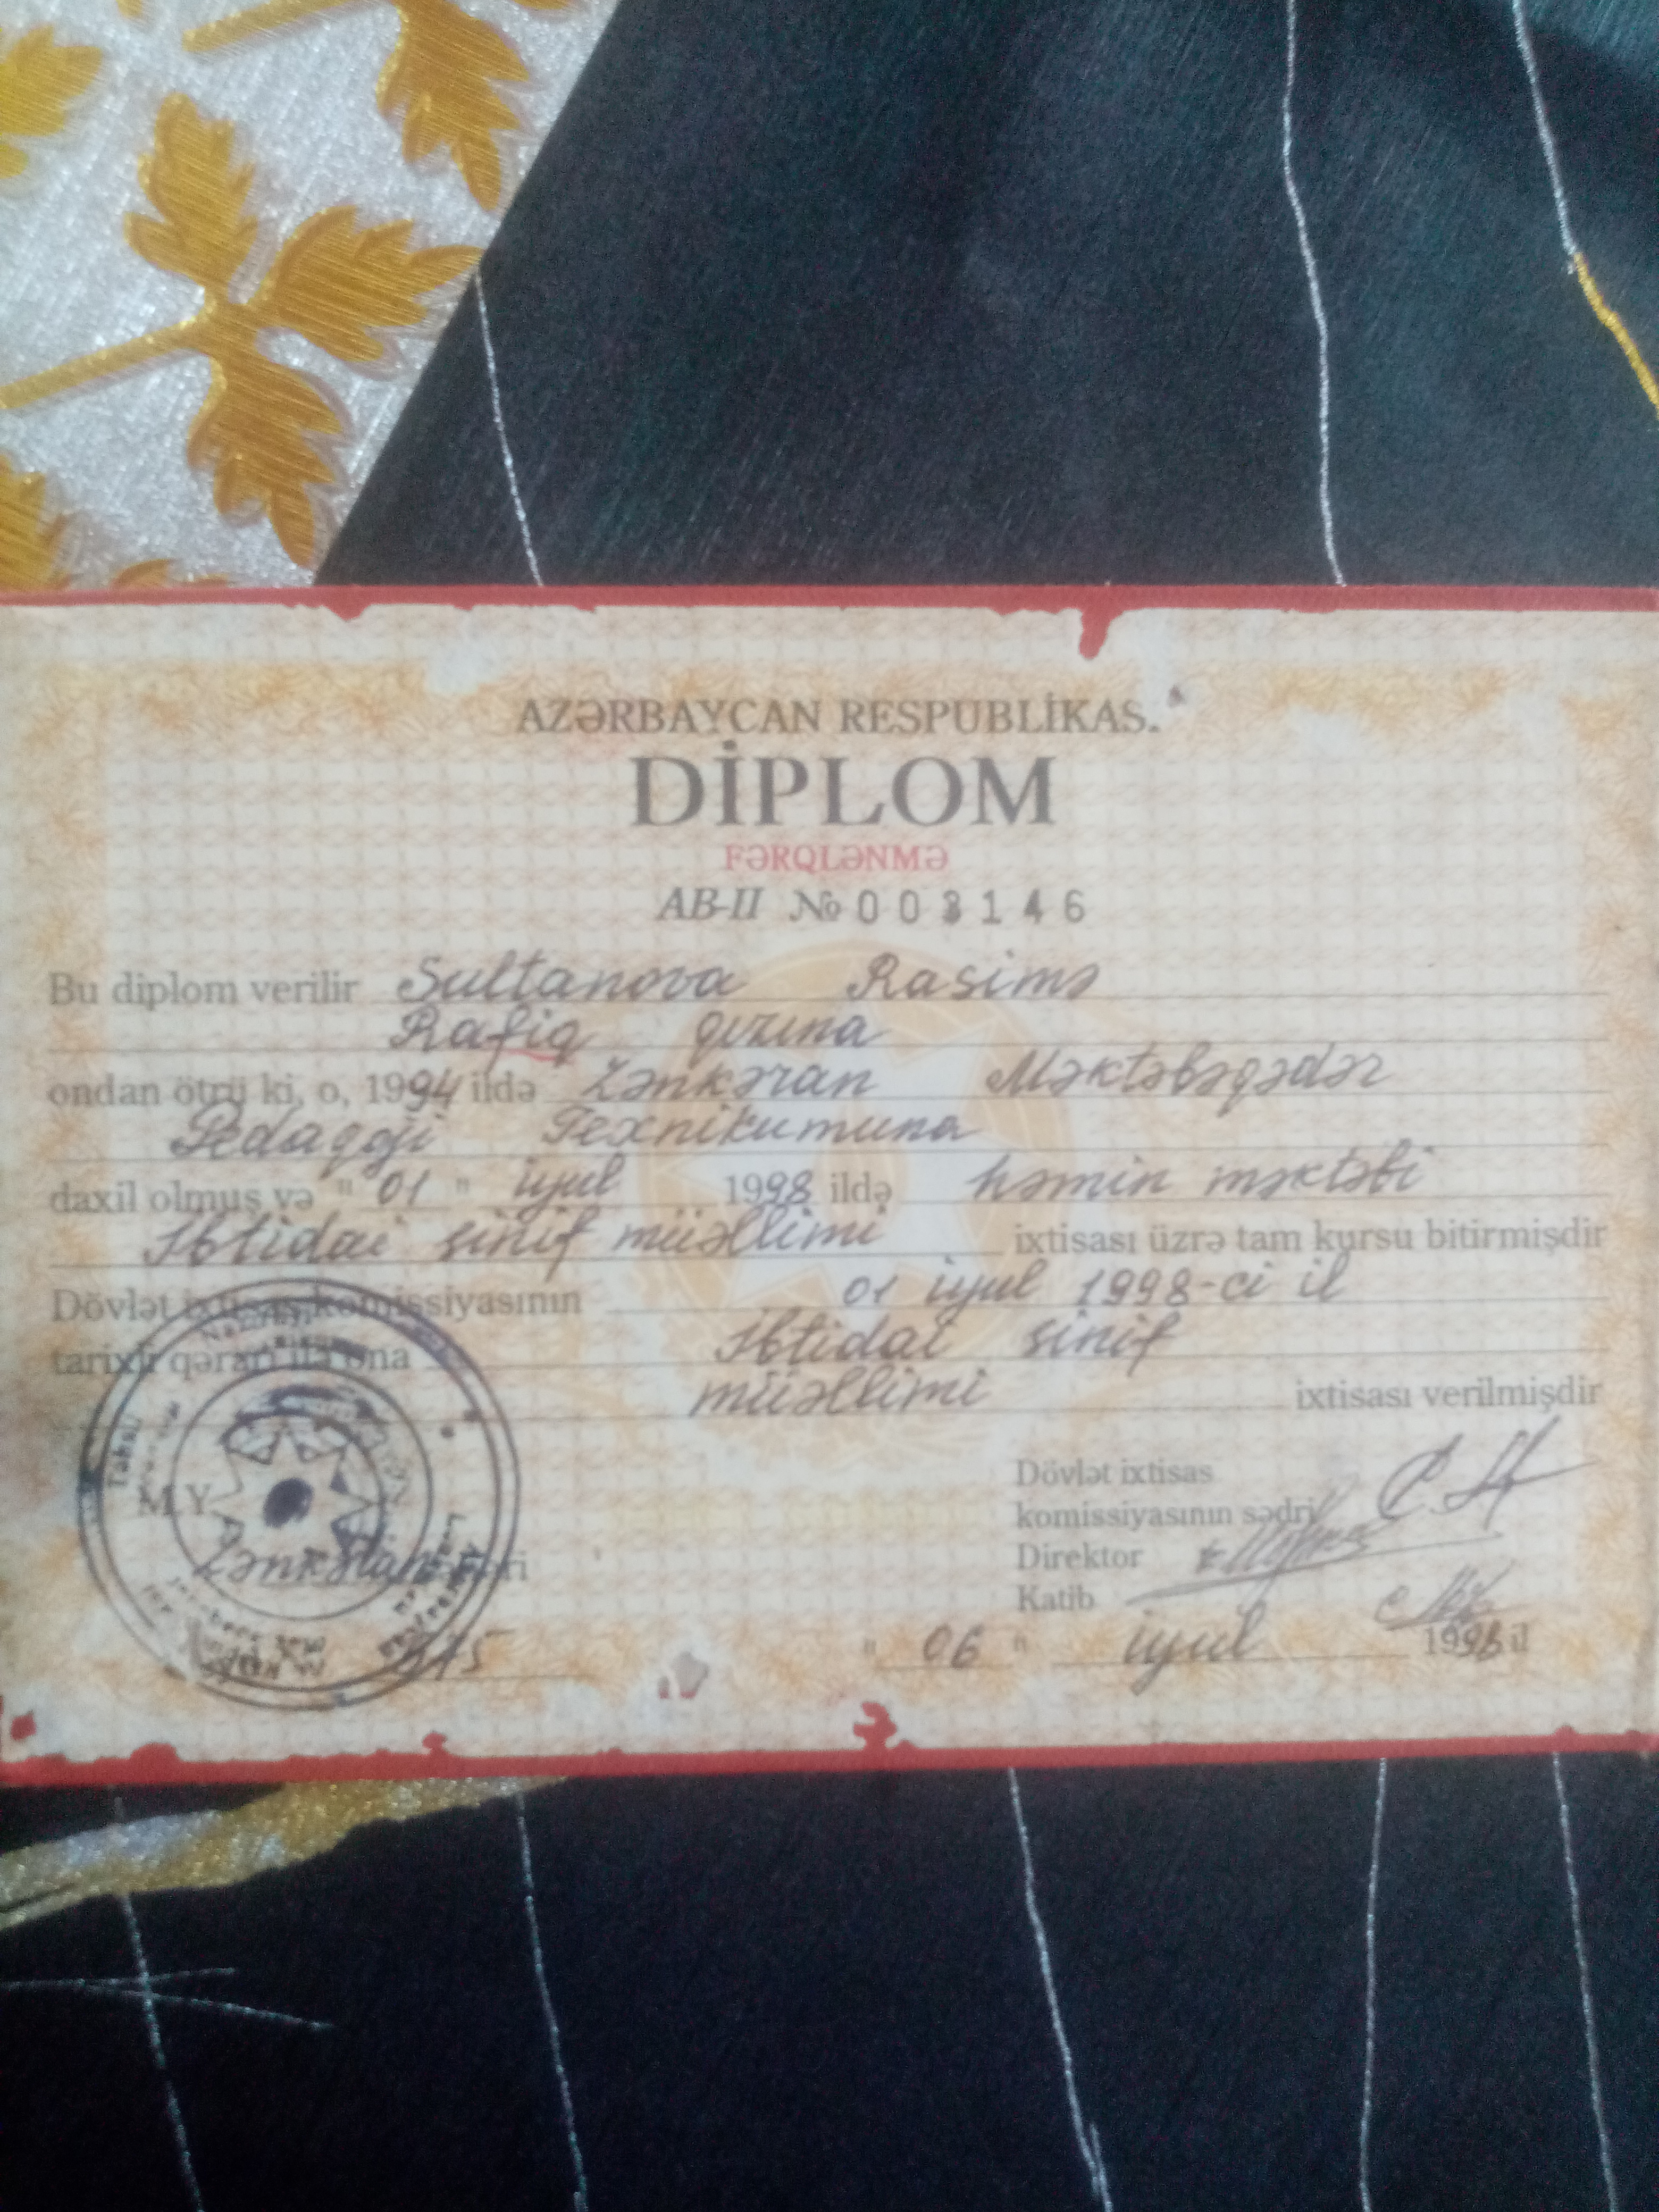 AZƏRBAYCAN RESPUBLİKAS
DİPLOM
FƏRQLƏNMƏ
AB-II № 003146
Bu diplom verilir Sultanova Rasimə
Rafiq qızına
ondan ötrü ki, o, 1994 ildə Lənkəran Məktəbəqədər
Pedaqoji Texnikumuna
daxil olmuş və " 01 " iyul 1998 ildə həmin məktəbi
İbtidai sinif müəllimi ixtisası üzrə tam kursu bitirmişdir
Dövlət ixtisas komissiyasının 01 iyul 1998-ci il
tarixli qərarı ilə ona İbtidai sinif
müəllimi ixtisası verilmişdir
Dövlət ixtisas
komissiyasının sədri
M.Y.
Direktor
Lənkəran
Katib
" 06 " iyul 1998 il